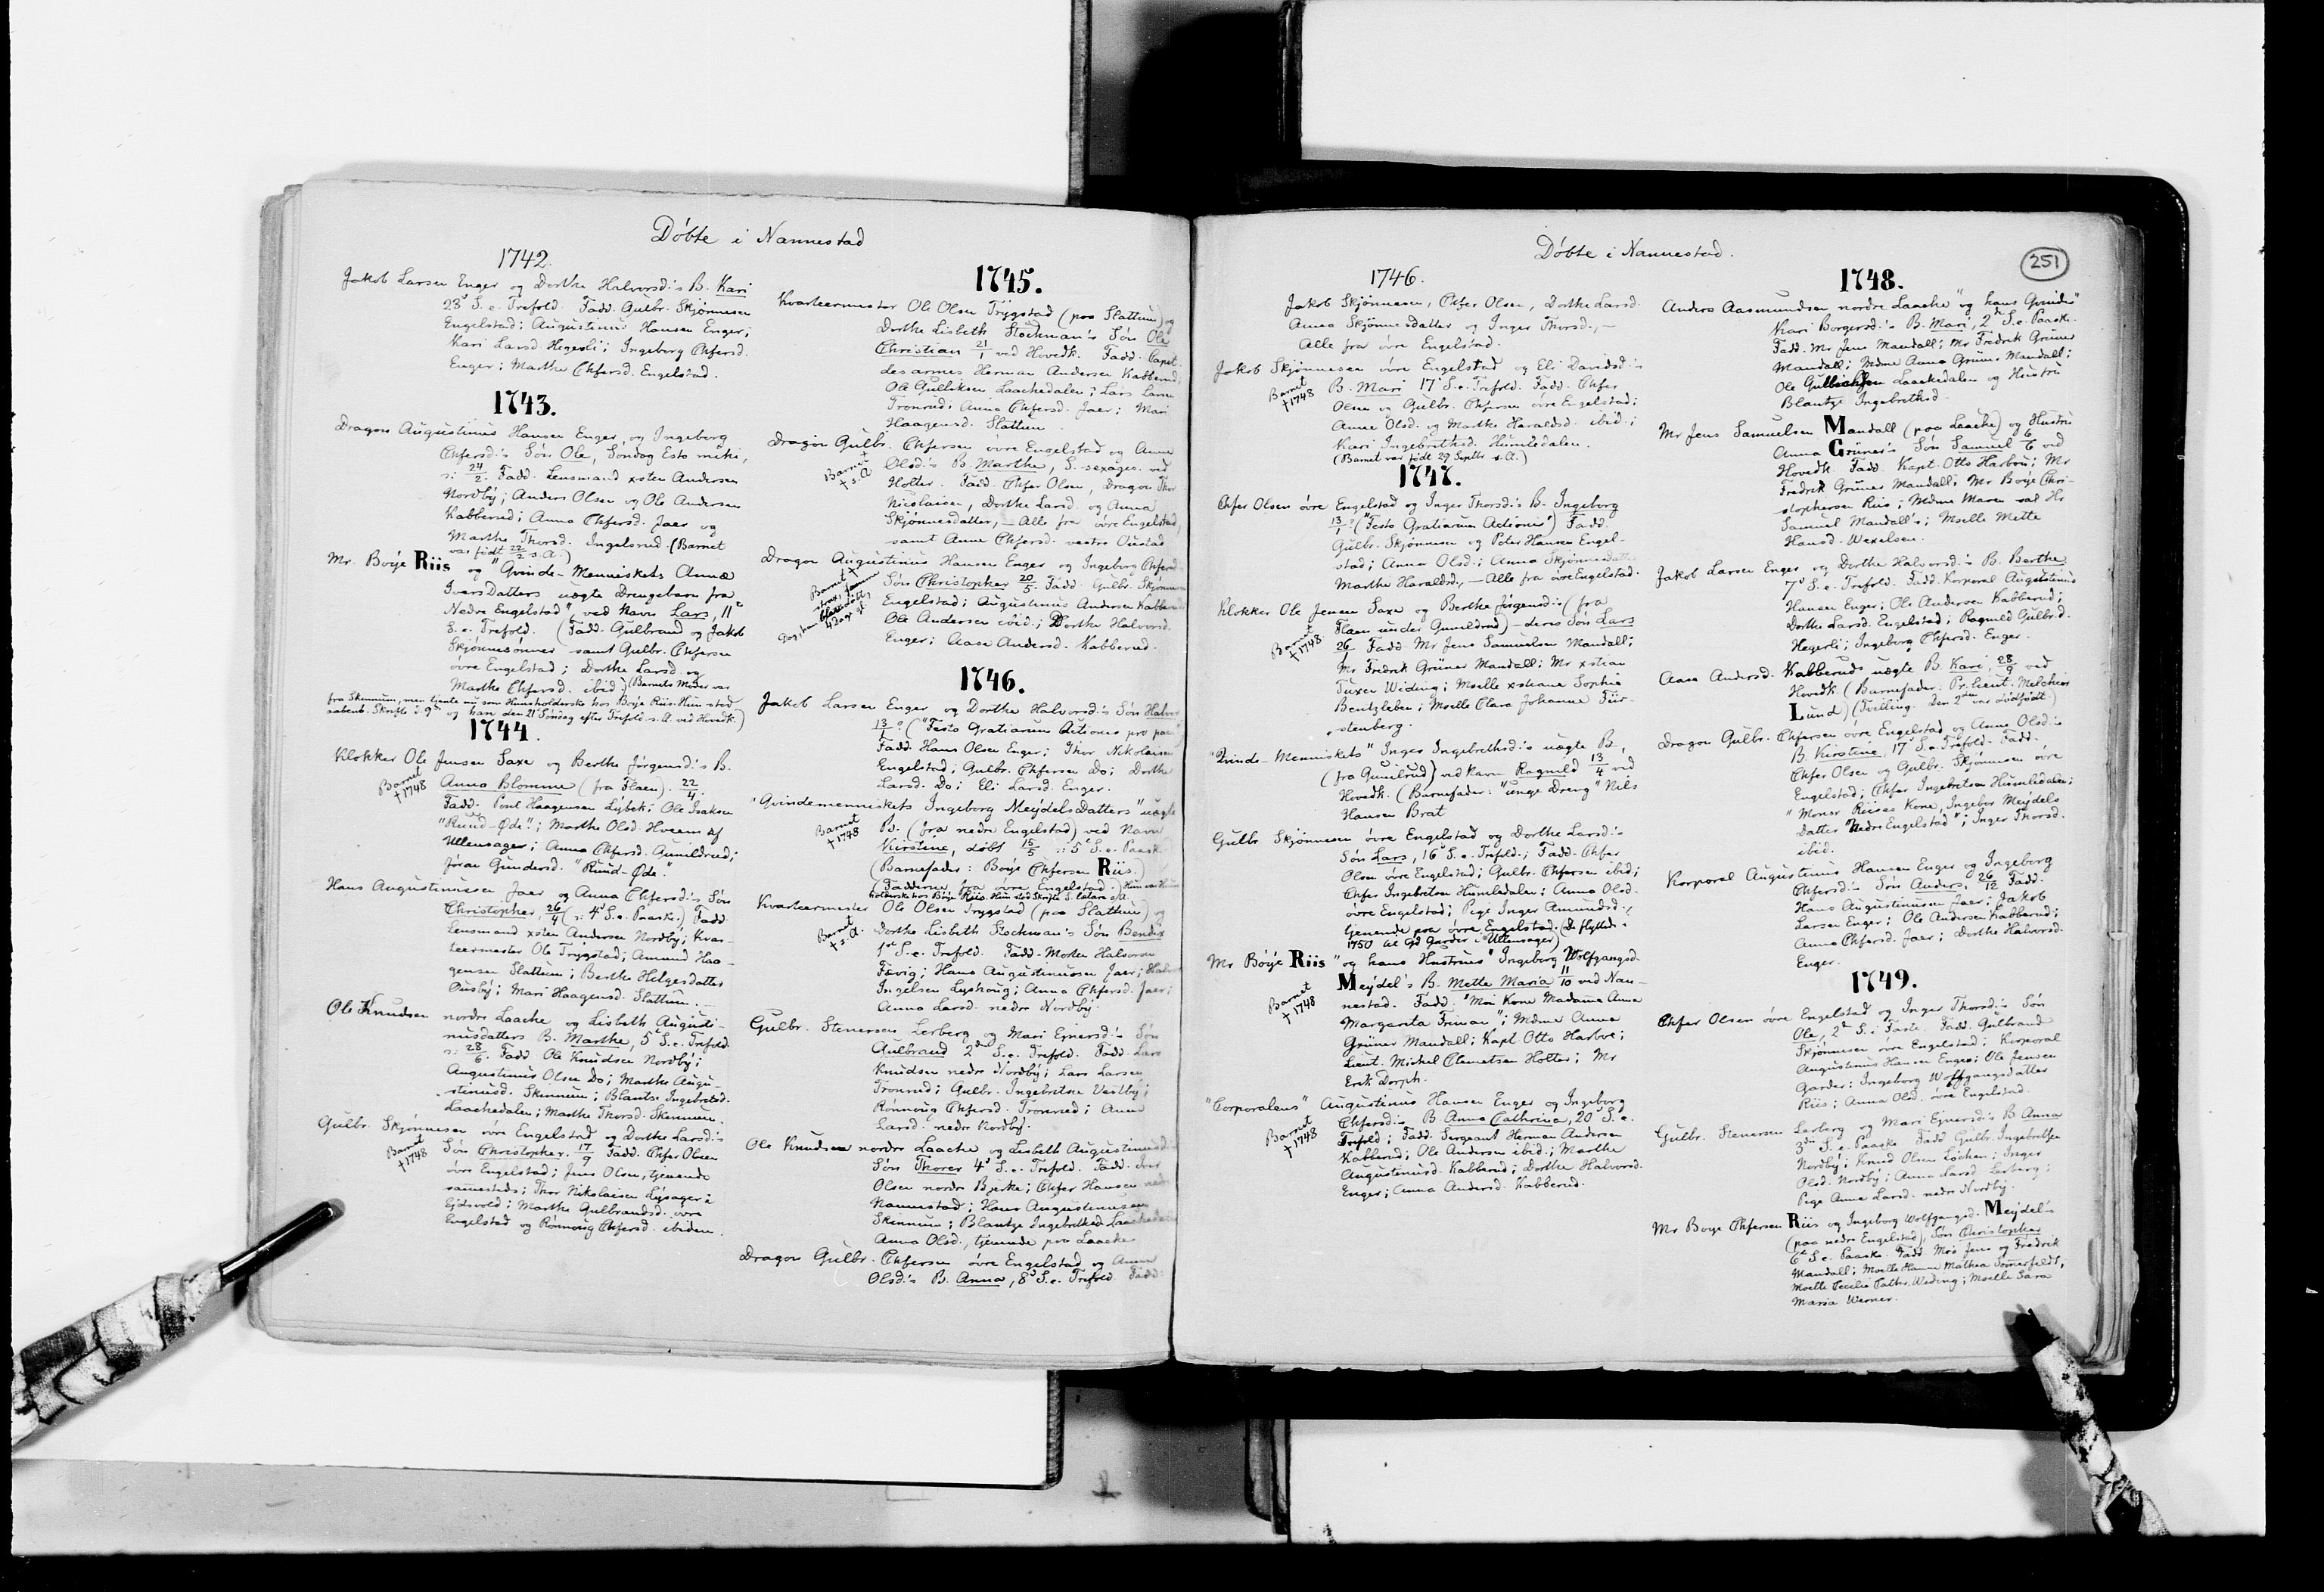 Döbte i Nannestad
1742.
Jakob Larsen Enger og Dorthe Halvorsd.'s B. Kari
23' S. e. Trefold. Fadd. Gulbr. Skjönnesen
Engelstad; Augustinus Hansen Enger;
Kari Larsd. Hegerli; Ingeborg Chfersd.
Enger; Marthe Chfersd. Engelstad.
1743.
Dragon Augustinus Hansen Enger, og Ingeborg
Chfersd.'s Sön Ole, Söndag Esto mihi,
ɔ: 24/2. Fadd. Lensmand xsten Andersen
Nordby; Anders Olsen og Ole Andersen
Kabberud; Anna Chfersd. Jaer og
Marthe Thorsd. Ingelsrud. (Barnet
var födt 22/2 s. A.)
Mr. Böÿe Riis og "Qvinde-Menniskets Annæ
IversDatters uægte Drengebarn fra
Nedre Engelstad" ved Navn Lars, 11te
S. e. Trefold. (Fadd. Gulbrand og Jakob
Skjönnesönner samt Gulbr. Chfersen
övre Engelstad; Dorthe Larsd. og
Marthe Chfersd. ibid.) (Barnets Moder var
fra Skinnum, men tjente nu som Huusholderske hos Böÿe Riis. Hun stod
aabenb. Skrifte i 9de og han den 21' Söndag efter Trefold. s. A. ved Hovedk.)
1744.
Klokker Ole Jensen Saxe og Berthe Jörgensd.'s B.
Barnet † 1748
Anna Blomme (fra Flaen). 22/4.
Fadd. Poul Haagensen Lÿbek; Ole Isaksen
"Ruud-Øde"; Marthe Olsd. Hveem af
Ullensager; Anna Chfersd. Gunildrud;
Jöran Gundersd. "Ruud-Øde."
Hans Augustinussen Jaer og Anna Chfersd.'s Sön
Christopher, 26/4 (ɔ: 4' S. e. Paaske.) Fadd.
Lensmand xsten Andersen Nordbÿ; Kvar-
teermester Ole Trÿgstad; Amund Haa-
gensen Slattum; Berthe Helgesdatter
Ousbÿ; Mari Haagensd. Slattum.
Ole Knudsen nordre Laache og Lisbeth Augusti-
nusdatters B. Marthe, 5' S. e. Trefold.
ɔ: 28/6. Fadd. Ole Knudsen Nordbÿ;
Augustinus Olsen Do; Marthe Augu-
stinusd. Skinnum; Blantse Ingebretsd.
Laachedalen; Marthe Thorsd. Skinnum.
Gulbr. Skjönnesen övre Engelstad og Dorthe Larsd.'s
Barnet † 1748
Sön Christopher. 17/9 Fadd. Chfer Olsen
övre Engelstad; Jens Olsen, tjenende
sammesteds; Thor Nikolaisen Lÿsager i
Ejdsvold; Marthe Gulbrandsd. övre
Engelstad og Rönnoug Chfersd. ibidem.
1745.
Kvarteermester Ole Olsen Trÿgstad (paa Slattum) og
Dorthe Lisbeth Stockman's Sön Ole
Christian 21/1 ved Hovedk. Fadd. Capit.
desarmes Herman Andersen Kabberud;
Ole Gulliksen Laachedalen; Lars Larsen
Tronrud; Anna Chfersd. Jaer; Mari
Haagensd. Slattum.
Dragon Gulbr. Chfersen övre Engelstad og Anne
Barnet † s. A
Olsd.'s B. Marthe, S. sexages. ved
Holter. Fadd. Chfer Olsen, Dragon Thor
Nicolaisen, Dorthe Larsd. og Anna
Skjönnesdatter, — Alle fra övre Engelstad,
samt Anne Chfersd. vestre Oustad
Dragon Augustinus Hansen Enger og Ingeborg Chfersd.
Barnet †
Sön Christopher 20/5. Fadd. Gulbr. Skjönnesen
Engelstad; Augustinus Andersen Kabberud
Ole Andersen ibid.; Dorthe Halvorsd.
Enger; Aase Andersd. Kabberud.
1746.
Jakob Larsen Enger og Dorthe Halvorsd.'s Sön Halvor
13/1 ("Festo Gratiarum Actionis pro pace")
Fadd. Hans Olsen Enger; Thor Nikolaisen
Engelstad; Gulbr. Chfersen Do; Dorthe
Larsd. Do; Eli Larsd. Enger.
"Qvindemenniskets Ingeborg Meÿdels Datters" uægte
Barnet † 1748
B. (fra nedre Engelstad) ved Navn
Kirstine, döbt 15/5 ɔ: 5' S. e. Paaske
(Barnefader: Böÿe Chfersen Riis.)
(Fadderne fra övre Engelstad.) Hun var Huus-
holderske hos Böÿe Riis. Hun stod Skrifte S. Lætare
Kvarteermester Ole Olsen Trygstad (paa Slattum) og
Barnet † s. A.
Dorthe Lisbeth Stockman's Sön Bendix
1ste S. e. Trefold. Fadd. Morten Halvorsen
Fævig; Hans Augustinussen Jaer; Halvor
Ingelsen Lyshoug; Anna Chfersd. Jaer;
Anna Larsd. nedre Nordby.
Gulbr. Stenersen Lerberg og Mari Ejnersd.'s Sön
Gulbrand 2den S. e. Trefold. Fadd. Lars
Knudsen nedre Nordbÿ; Lars Larsen
Tronrud; Gulbr. Ingebretsen Vestbÿ;
Rönnoug Chfersd. Tronrud; Anne
Larsd. nedre Nordbÿ.
Ole Knudsen nordre Laache og Lisbeth Augustinusd.
Sön Thorer 4' S. e. Trefold. Fadd. Iver
Olsen nordre Bjerke; Chfer Hansen nedre
Nannestad; Hans Augustinussen
Skinnum; Blantze Ingebrethsd. Laachedalen
Anna Olsd., tjenende paa Laache
Dragon Gulbr. Chfersen övre Engelstad og Anne
Olsd.'s B. Anna, 8' S. e. Trefold. Fadd:
Döbte i Nannestad.
251
1746.
Jakob Skjönnesen, Chfer Olsen, Dorthe Larsd.
Anna Skjönnesdatter og Inger Thorsd., —
Alle fra övre Engelstad.
Jakob Skjönnesen övre Engelstad og Eli Davidsd.'s
Barnet † 1748
B. Mari 17' S. e. Trefold. Fadd. Chfer
Olsen og Gulbr. Chfersen övre Engelstad;
Anne Olsd. og Marthe Haraldsd. ibid.;
Kari Ingebrethsd. Humledalen.
(Barnet var födt 29 Septbr. s. A.)
1747.
Chfer Olsen övre Engelstad og Inger Thorsd.'s B. Ingeborg
13/1 ("Festo Gratiarum Actionis") Fadd.
Gulbr. Skjönnesen og Peter Hansen Engel-
stad; Anna Olsd.; Anna Skjönnesdatter
Marthe Haraldsd., — Alle fra övre Engelstad.
Klokker Ole Jensen Saxe og Berthe Jörgensd.'s (fra
Barnet † 1748
Flaen under Gunildrud) — deres Sön Lars
26/1 Fadd. Mr Jens Samuelsen Mandall;
Mr Fredrik Grüner Mandall; Mr xstian
Tuxen Widing; Mselle xstiane Sophie
Bentzleben; Mselle Clara Johanne Für-
stenberg.
"Qvinde-Menniskets" Inger Ingebrethsd.'s uægte B.,
(fra Gunilrud) ved Navn Ragnild 13/4 ved
Hovedk. (Barnefader: "unge Dreng" Nils
Hansen Brat
Gulbr. Skjönnesen övre Engelstad og Dorthe Larsd.'s
Sön Lars, 16' S. e. Trefold.; Fadd. Chfer
Olsen övre Engelstad; Gulbr. Chfersen ibid;
Chfer Ingebretsen Humledalen; Anna Olsd.
övre Engelstad; Pige Inger Amundsd.,
tjenende paa övre Engelstad. (De flyttede i
1750 til Gd Garder i Ullensager)
Mr Böÿe Riis "og hans Hustrues" Ingeborg Wolfgangsd.
Barnet † 1748
Meÿdel's B. Mette Maria 11/10 ved Nan-
nestad. Fadd. "Min Kone Madame Anna
Margareta Friman"; Mdme Anna
Grüner Mandall; Kapt. Otto Harboe;
Lieut. Michel Clemetsen Holter; Mr
Erik Dorph.
"Corporalens" Augustinus Hansen Enger og Ingeborg
Barnet † 1748
Chfersd.'s B Anne Cathrine, 20' S. e.
Trefold; Fadd. Sergeant Herman Andersen
Kabberud; Ole Andersen ibid.; Marthe
Augustinusd. Kabberud; Dorthe Halvorsd.
Enger; Anna Andersd. Kabberud.
1748.
Anders Aasmundsen nordre Laache "og hans Qvindes"
Kari Borgersd.'s B. Mari, 2den S. e. Paaske.
Fadd. Mr Jens Mandall; Mr Fredrik Grüner
Mandall; Mdme Anna Grüner Mandall;
Ole Gullichsen Laachedalen og Hustru
Blantze Ingebrethsd.
Mr Jens Samuelsen Mandall (paa Laache) og Hustru
Anna Grüner's Sön Samuel 6/6 ved
Hovedk. Fadd. Kapt. Otto Harboe; Mr
Fredrik Grüner Mandall; Mr Böÿe Chri-
stophersen Riis; Mdme Maren sal. Hr
Samuel Mandall's; Mselle Mette
Hansd. Wexelsen.
Jakob Larsen Enger og Dorthe Halvorsd.'s B. Berthe
7' S. e. Trefold. Fadd. Korporal Augustinus
Hansen Enger; Ole Andersen Kabberud;
Dorthe Larsd. Engelstad; Ragnild Gulbr.d.
Hegerli; Ingeborg Chfersd. Enger.
Aase Andersd. Kabberuds uægte B. Kari, 28/9 ved
Hovedk. (Barnefader: Pr. Lieut. Melchior
Lund) (Tvilling. Den 2den var dödfödt.)
Dragon Gulbr. Chfersen övre Engelstad og Anne Olsd.'s
B. Kirstine, 17' S. e. Trefold. Fadd.
Chfer Olsen og Gulbr. Skjönnesen övre
Engelstad; Chfer Ingebretsen Humledalen;
"Monsr Riises Kone, Ingebor Meÿdels
Datter Nedre Engelstad"; Inger Thorsd.
ibid.
Korporal Augustinus Hansen Enger og Ingeborg
Chfersd.'s Sön Anders, 26/12 Fadd.
Hans Augustinusen Jaer; Jakob
Larsen Enger; Ole Andersen Kabberud;
Anna Chfersd. Jaer; Dorthe Halvorsd.
Enger.
1749.
Chfer Olsen övre Engelstad og Inger Thorsd.'s Sön
Ole, 2den S. i Faste. Fadd. Gulbrand
Skjönnesen övre Engelstad; Korporal
Augustinus Hansen Enger; Ole Jensen
Garder; Ingeborg Wolfgangsdatter
Riis; Anna Olsd. övre Engelstad.
Gulbr. Stenersen Lerberg og Mari Ejnersd.'s B Anna
3die S. e. Paaske Fadd. Gulbr. Ingebrethsen
Nordbÿ; Knud Olsen Löchen; Inger
Olsd. Nordbÿ; Anna Larsd. Lerberg;
Pige Anne Larsd. nedre Nordbÿ.
Mr Boye Chfersen Riis og Ingeborg Wolfgangsd. Meÿdel's
(paa nedre Engelstad), Sön Christopher
6te S. e. Paaske. Fadd. Mrs Jens og Fredrik
Mandall; Mselle Hanne Mathea Somerfeldt,
Mselle Cecilie Cathr. Widing; Mselle Sara
Maria Werner.